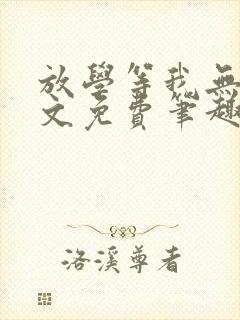 放學等我無
文免費筆趣
洛溪尊者